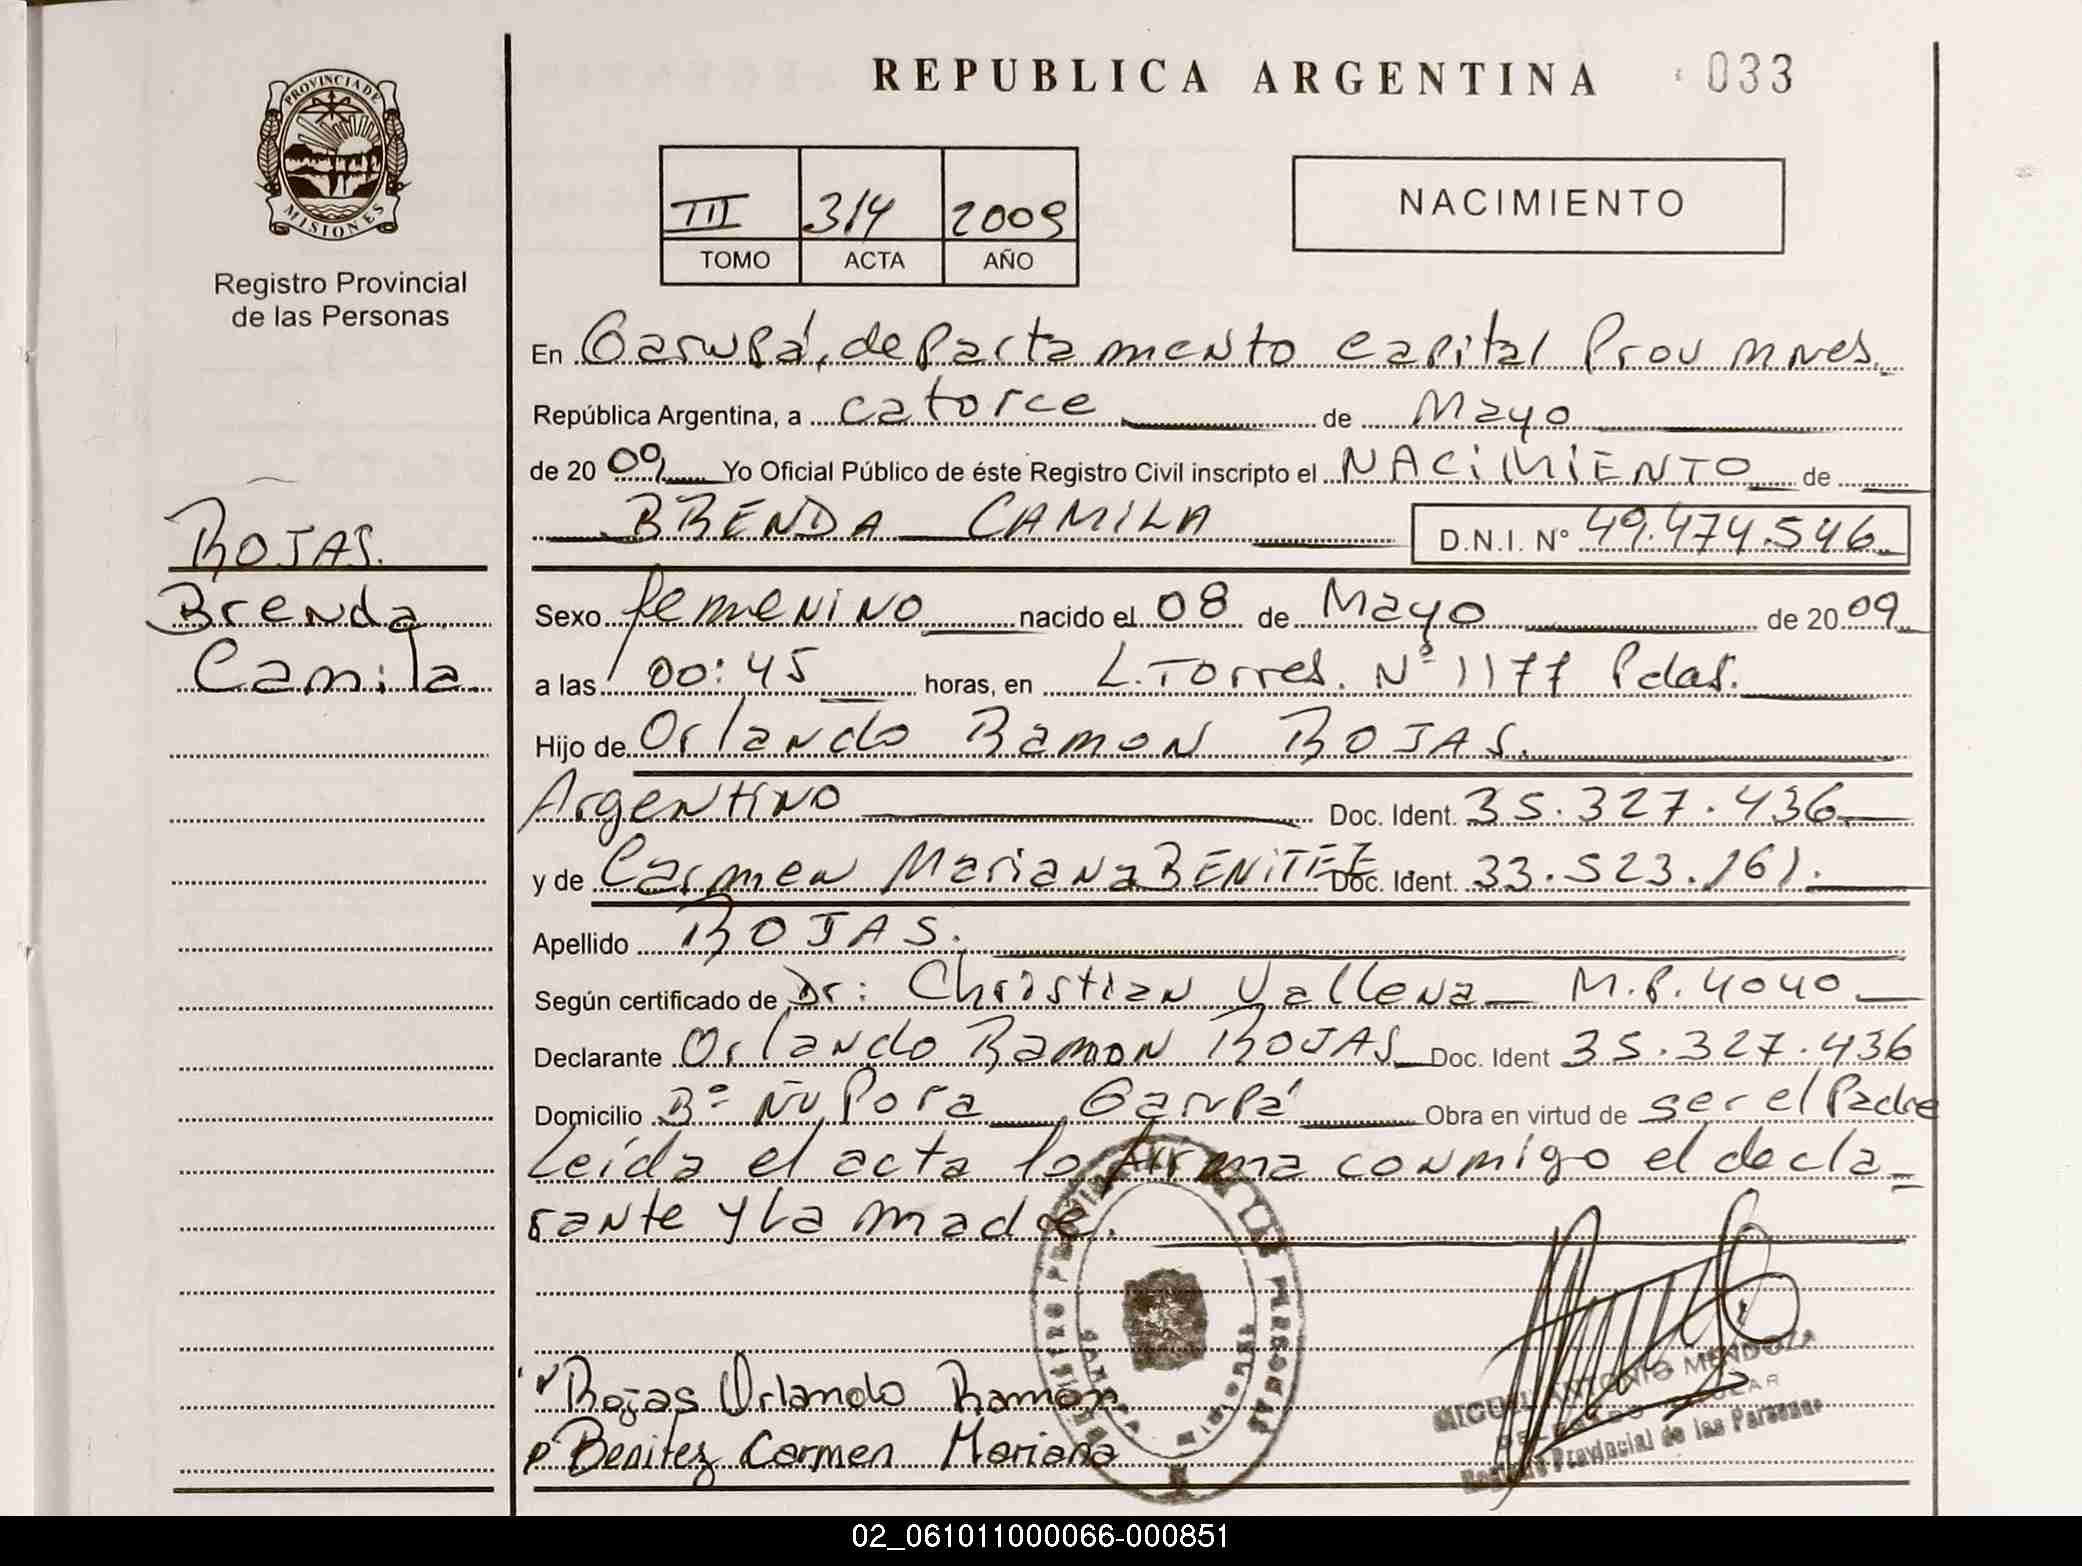 REPUBLICA ARGENTINA 033
PROVINCIA DE
MISIONES
Registro Provincial
de las Personas
NACIMIENTO
III 314 2009
TOMO ACTA AÑO
En Garupá, departamento Capital Prov Mnes.
República Argentina, a catorce de Mayo
de 2009 Yo Oficial Público de éste Registro Civil inscripto el NACIMIENTO de
BRENDA CAMILA D.N.I. N° 49.474.546
ROJAS.
Brenda
Camila.
Sexo femenino nacido el 08 de Mayo de 2009
a las 00:45 horas, en L. Torres. Nº 1177 Pdas.
Hijo de Orlando Ramon ROJAS.
Argentino Doc. Ident. 35.327.436
y de Carmen Mariana BENITEZ Doc. Ident. 33.523.161.
Apellido ROJAS.
Según certificado de Dr: Christian Vallena M.P. 4040
Declarante Orlando Ramon ROJAS Doc. Ident 35.327.436
Domicilio Bº Ñu Pora Garupá Obra en virtud de ser el Padre
Leída el acta lo firma conmigo el decla-
rante y la madre.
Rojas Orlando Ramon
Benitez Carmen Mariana
MIGUEL ANTONIO MENDOZA
Provincial de las Personas
02_061011000066-000851